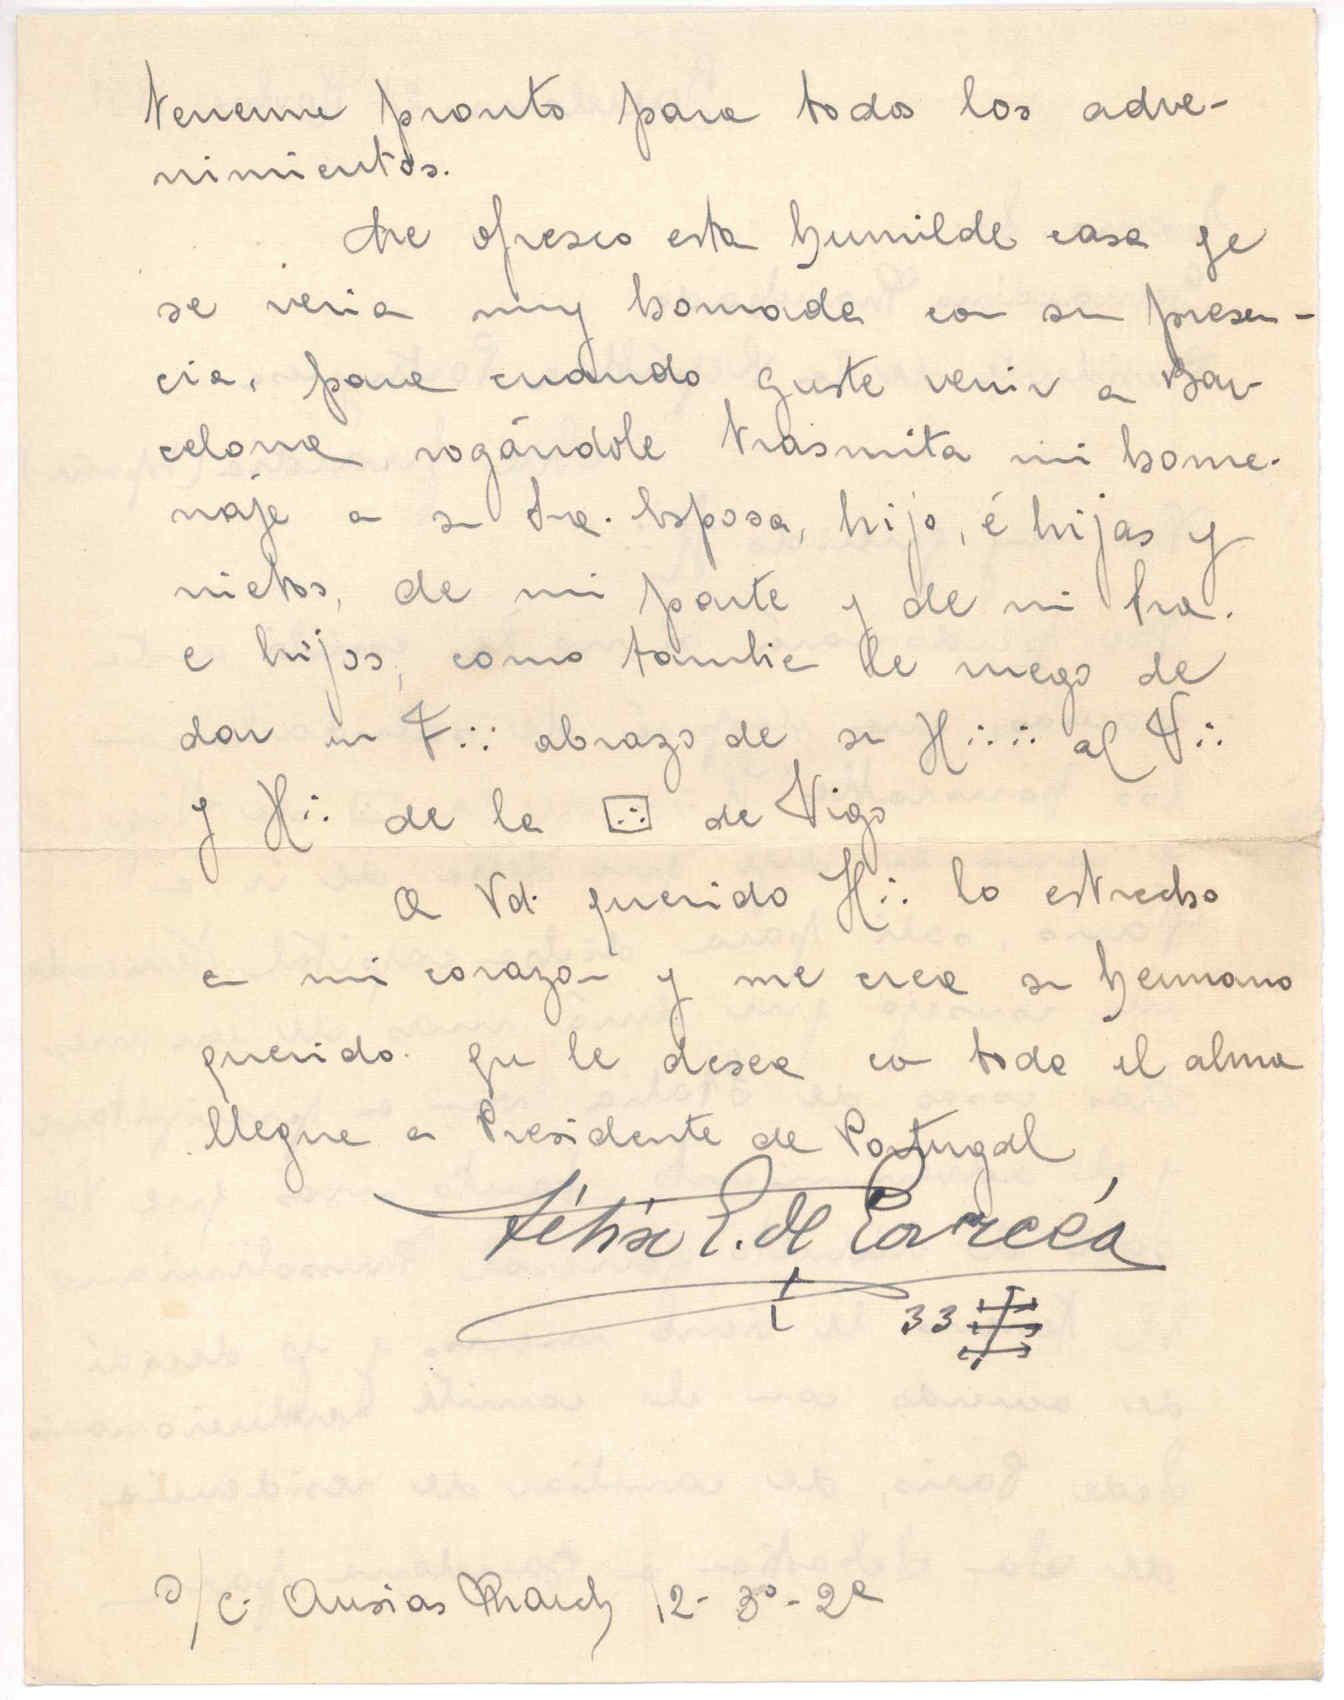 tenerme pronto para todos los adve-
nimientos.
Le ofresco esta humilde casa qe
se veria muy honrada con su presen-
cia, para cuando guste venir a Bar-
celona rogándole trasmita mi home-
naje a su Sra. Esposa, hijo, é hijas y
nietos, de mi parte y de mi Sra.
e hijos, como tambie le ruego de
dar un F∴ abrazo de su H∴∴ al V∴
y H∴ de la [∴] de Vigo
A Vd. querido H∴ lo estrecho
en mi corazon y me crea su hermano
querido. qu le desea con toda el alma
llegue a Presidente de Portugal
Félix E. de
33
s/c. Ausias March 12- 3º- 2ª